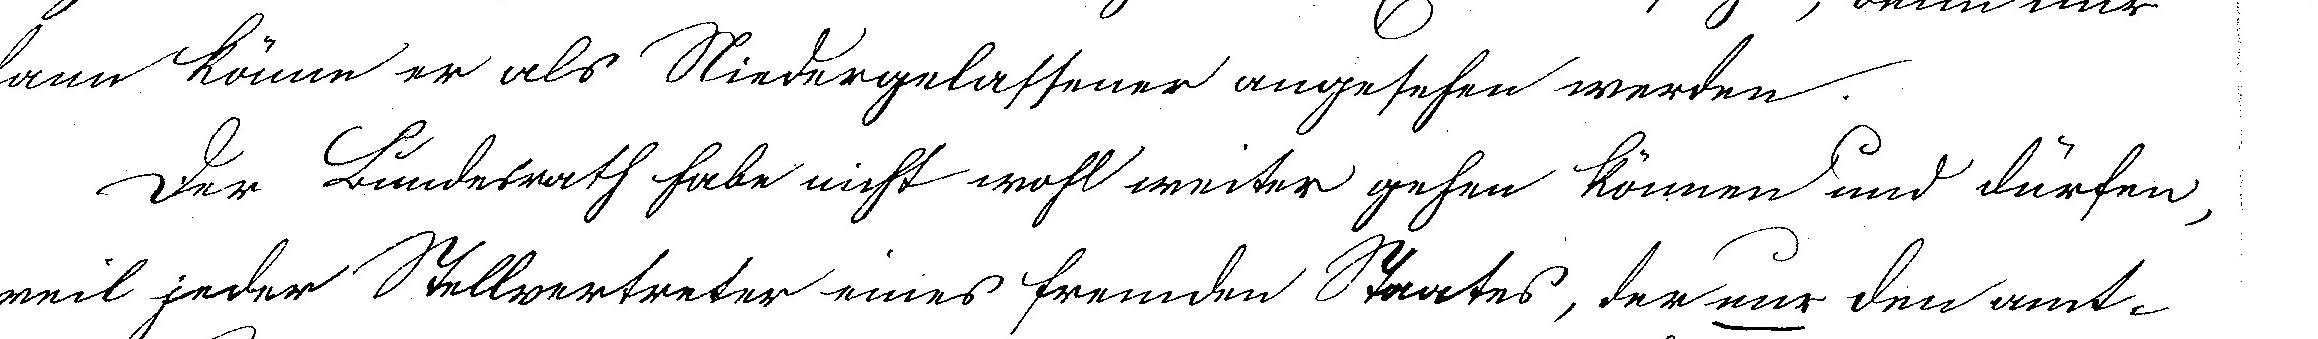 denn nur
dann könne er als Niedergelassener angesehen werden.
Der Bundesrath habe nicht wohl weiter gehen können und dürfen,
weil jeder Stellvertreter eines fremden Staates, der nur den amt-